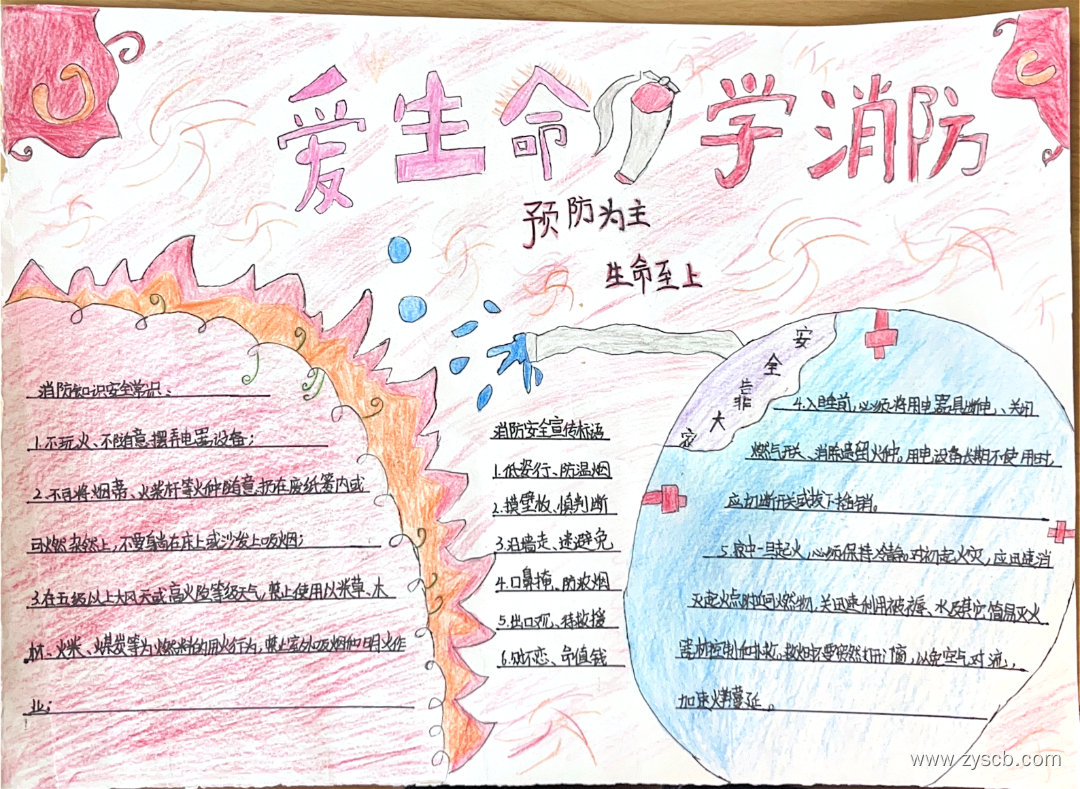 爱生命 学消防
预防为主
生命至上
消防知识安全常识:
1.不玩火、不随意摆弄电器设备;
2.不可将烟蒂、火柴杆等火种随意扔在废纸篓内或
可燃杂然上,不要躺在床上或沙发上吸烟;
3.在五级以上大风天或高火险等级天气,禁止使用以米草、木
材、火米、煤炭等为燃料的用火行为,禁止室外吸烟和明火作
业;
消防安全宣传标语
1.低姿行、防温烟
2.摸壁板、慎判断
3.沿墙走、迷避免
4.口鼻掩、防浓烟
5.出口沉、待救援
6.财不恋、命值钱
安全靠大家
4.入睡前,必须将用电器具断电、关闭
燃气开关、消除遗留火种。用电设备长期不使用时,
应切断开关或拔下插销。
5.家中一旦起火,必须保持冷静。对初起火灾,应迅速消
灭起火点附近可燃物,关迅速利用被褥、水及其它简易灭火
器材控制和扑救。救火时不要突然打开门窗,以免空气对流,
加速火势蔓延。
www.zyscb.com